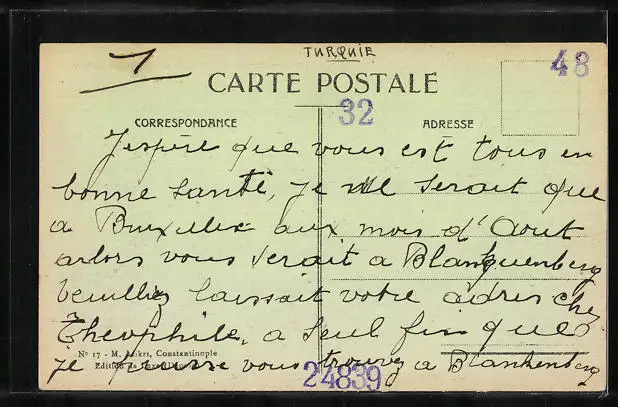 TURQUIE
1
48
CARTE POSTALE
32
CORRESPONDANCE
ADRESSE
J'espère que vous est tous en
bonne santé, je ne serait que
a Bruxelle aux mois d'Aout
arlors vous serait a Blankquenberg
veuillez laissait votre adres chez
Theophile, a seul fin que
No 17 - M. Constantinople
Edition de
je puisse vous trouvez a Blankenberg
24839